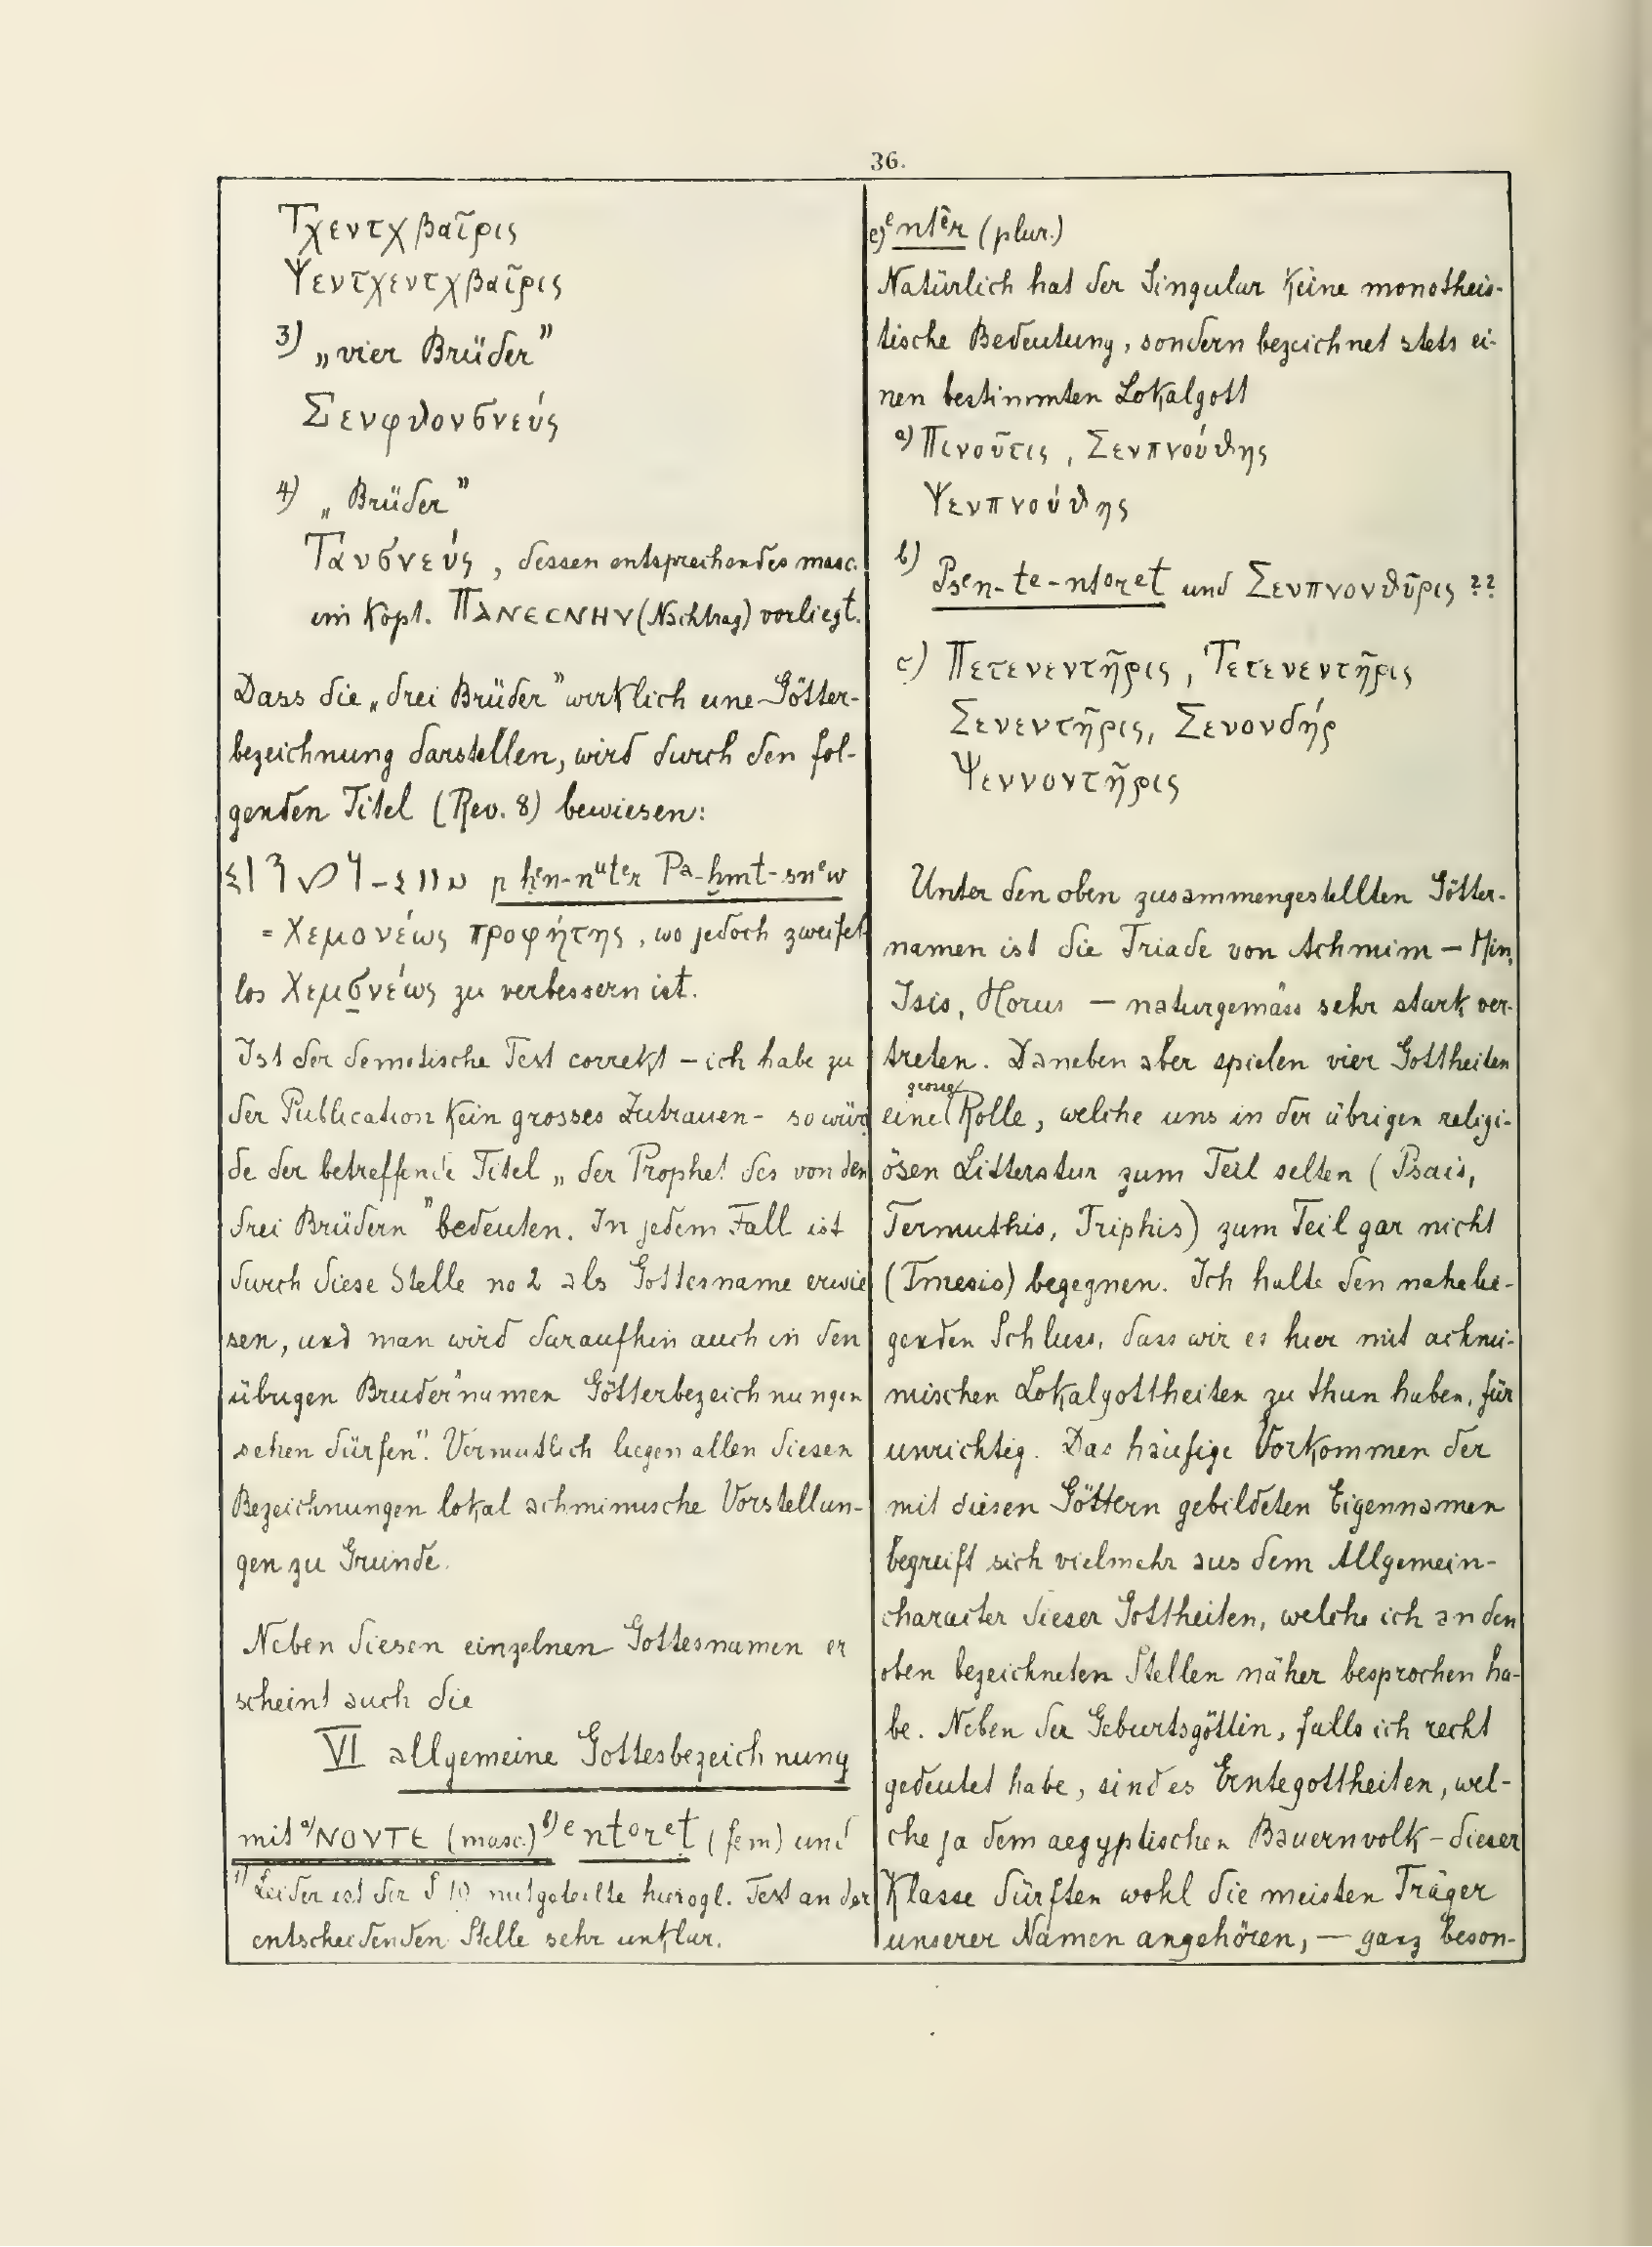 36.
Τχεντχβαῖρις
Ψεντχεντχβαῖρις
3) „vier Brüder”
Σενφθονσνεύς
4) „Brüder”
Τανσνεύς, dessen entsprechendes masc.
im Kopt. ΠΑΝΕCΝΗΥ (Nachtrag) vorliegt.
Dass die „drei Brüder” wirklich eine Götter-
bezeichnung darstellen, wird durch den fol-
genden Titel (Rev. 8) bewiesen:
p ḥen-nuter Pa-ḫmt-snew
= Χεμονέως προφήτης, wo jedoch zweifel
los Χεμσνέως zu verbessern ist.
Ist der demotische Text correkt – ich habe zu
der Publication kein grosses Zutrauen – so wür
de der betreffende Titel „der Prophet des von den
drei Brüdern” bedeuten. In jedem Fall ist
durch diese Stelle no 2 als Gottesname erwie
sen, und man wird daraufhin auch in den
übrigen Bruder"namen Götterbezeichnungen
sehen dürfen¹⁾. Vermutlich liegen allen diesen
Bezeichnungen lokal achmimische Vorstellun-
gen zu Grunde.
Neben diesen einzelnen Gottesnamen er
scheint auch die
VI allgemeine Gottesbezeichnung
mit a) ΝΟΥΤΕ (masc.) b) entoret (fem) und
1) Leider ist der S 10 mitgeteilte hierogl. Text an der
entscheidenden Stelle sehr unklar.
c) entêr (plur.)
Natürlich hat der Singular keine monotheis-
tische Bedeutung, sondern bezeichnet stets ei-
nen bestimmten Lokalgott
a) Πινοῦτις, Σενπνούθης
Ψενπνούθης
b) Psen-te-ntoret und Σενπνονθῦρις ??
c) Πετενεντῆρις, Τετενεντῆρις
Σενεντῆρις, Σενονδήρ
Ψεννοντῆρις
Unter den oben zusammengestellten Götter-
namen ist die Triade von Achmim – Min,
Isis, Horus – naturgemäss sehr stark ver-
treten. Daneben aber spielen vier Gottheiten
eine grosse Rolle, welche uns in der übrigen religi-
ösen Litteratur zum Teil selten (Psais,
Termuthis, Triphis) zum Teil gar nicht
(Tmesis) begegnen. Ich halte den nahelie-
genden Schluss, dass wir es hier mit achmi-
mischen Lokalgottheiten zu thun haben, für
unrichtig. Das häufige Vorkommen der
mit diesen Göttern gebildeten Eigennamen
begreift sich vielmehr aus dem Allgemein-
character dieser Gottheiten, welche ich an den
oben bezeichneten Stellen näher besprochen ha-
be. Neben der Geburtsgöttin, falls ich recht
gedeutet habe, sind es Erntegottheiten, wel-
che ja dem aegyptischen Bauernvolk – dieser
Klasse dürften wohl die meisten Träger
unserer Namen angehören, – ganz beson-